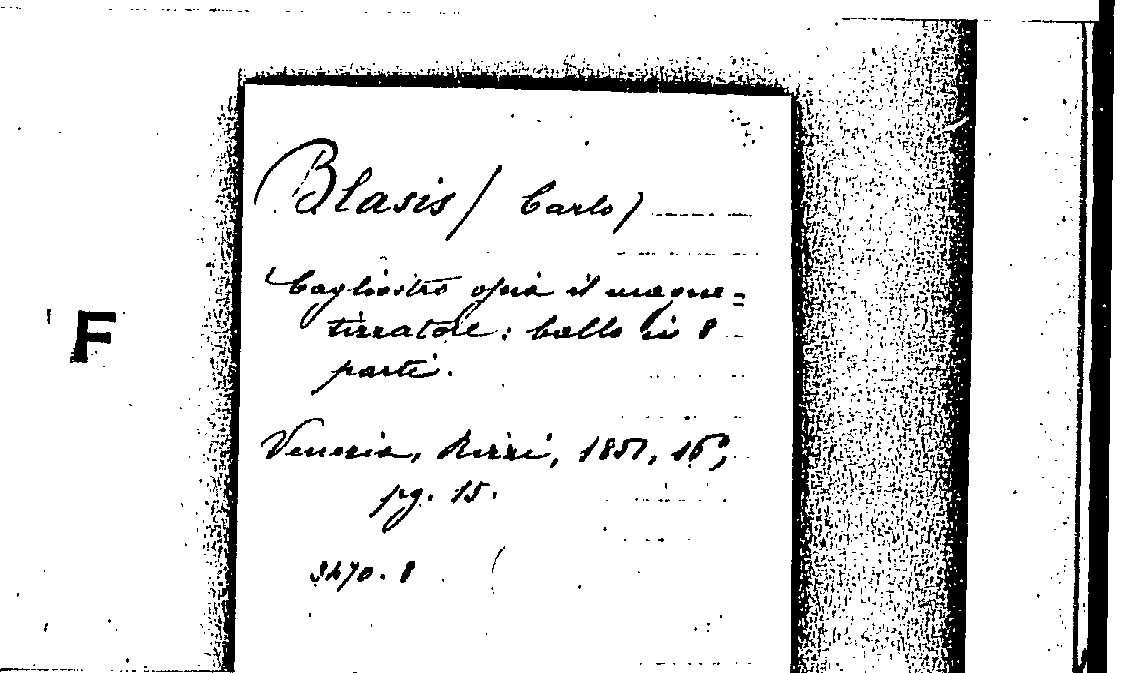 F
Blasis / Carlo /
Cagliostro ossia il magne=
tizzatore: ballo in 8
parti.
Venezia, Rizzi, 1851, 16°,
pg. 15.
3470.8